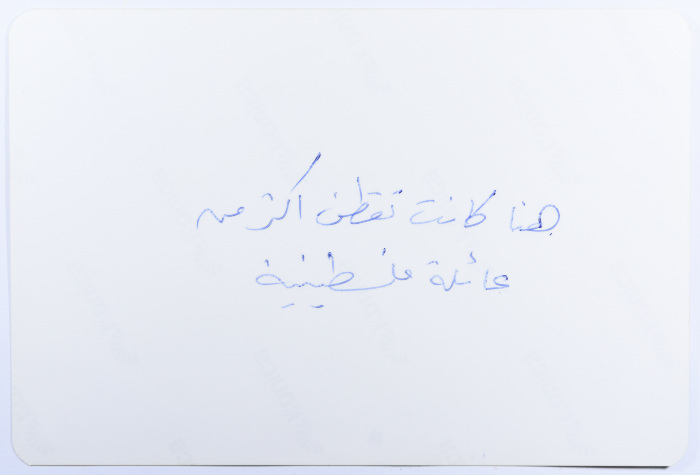 هنا كانت تقطن اكثر من
عائلة فلسطينية